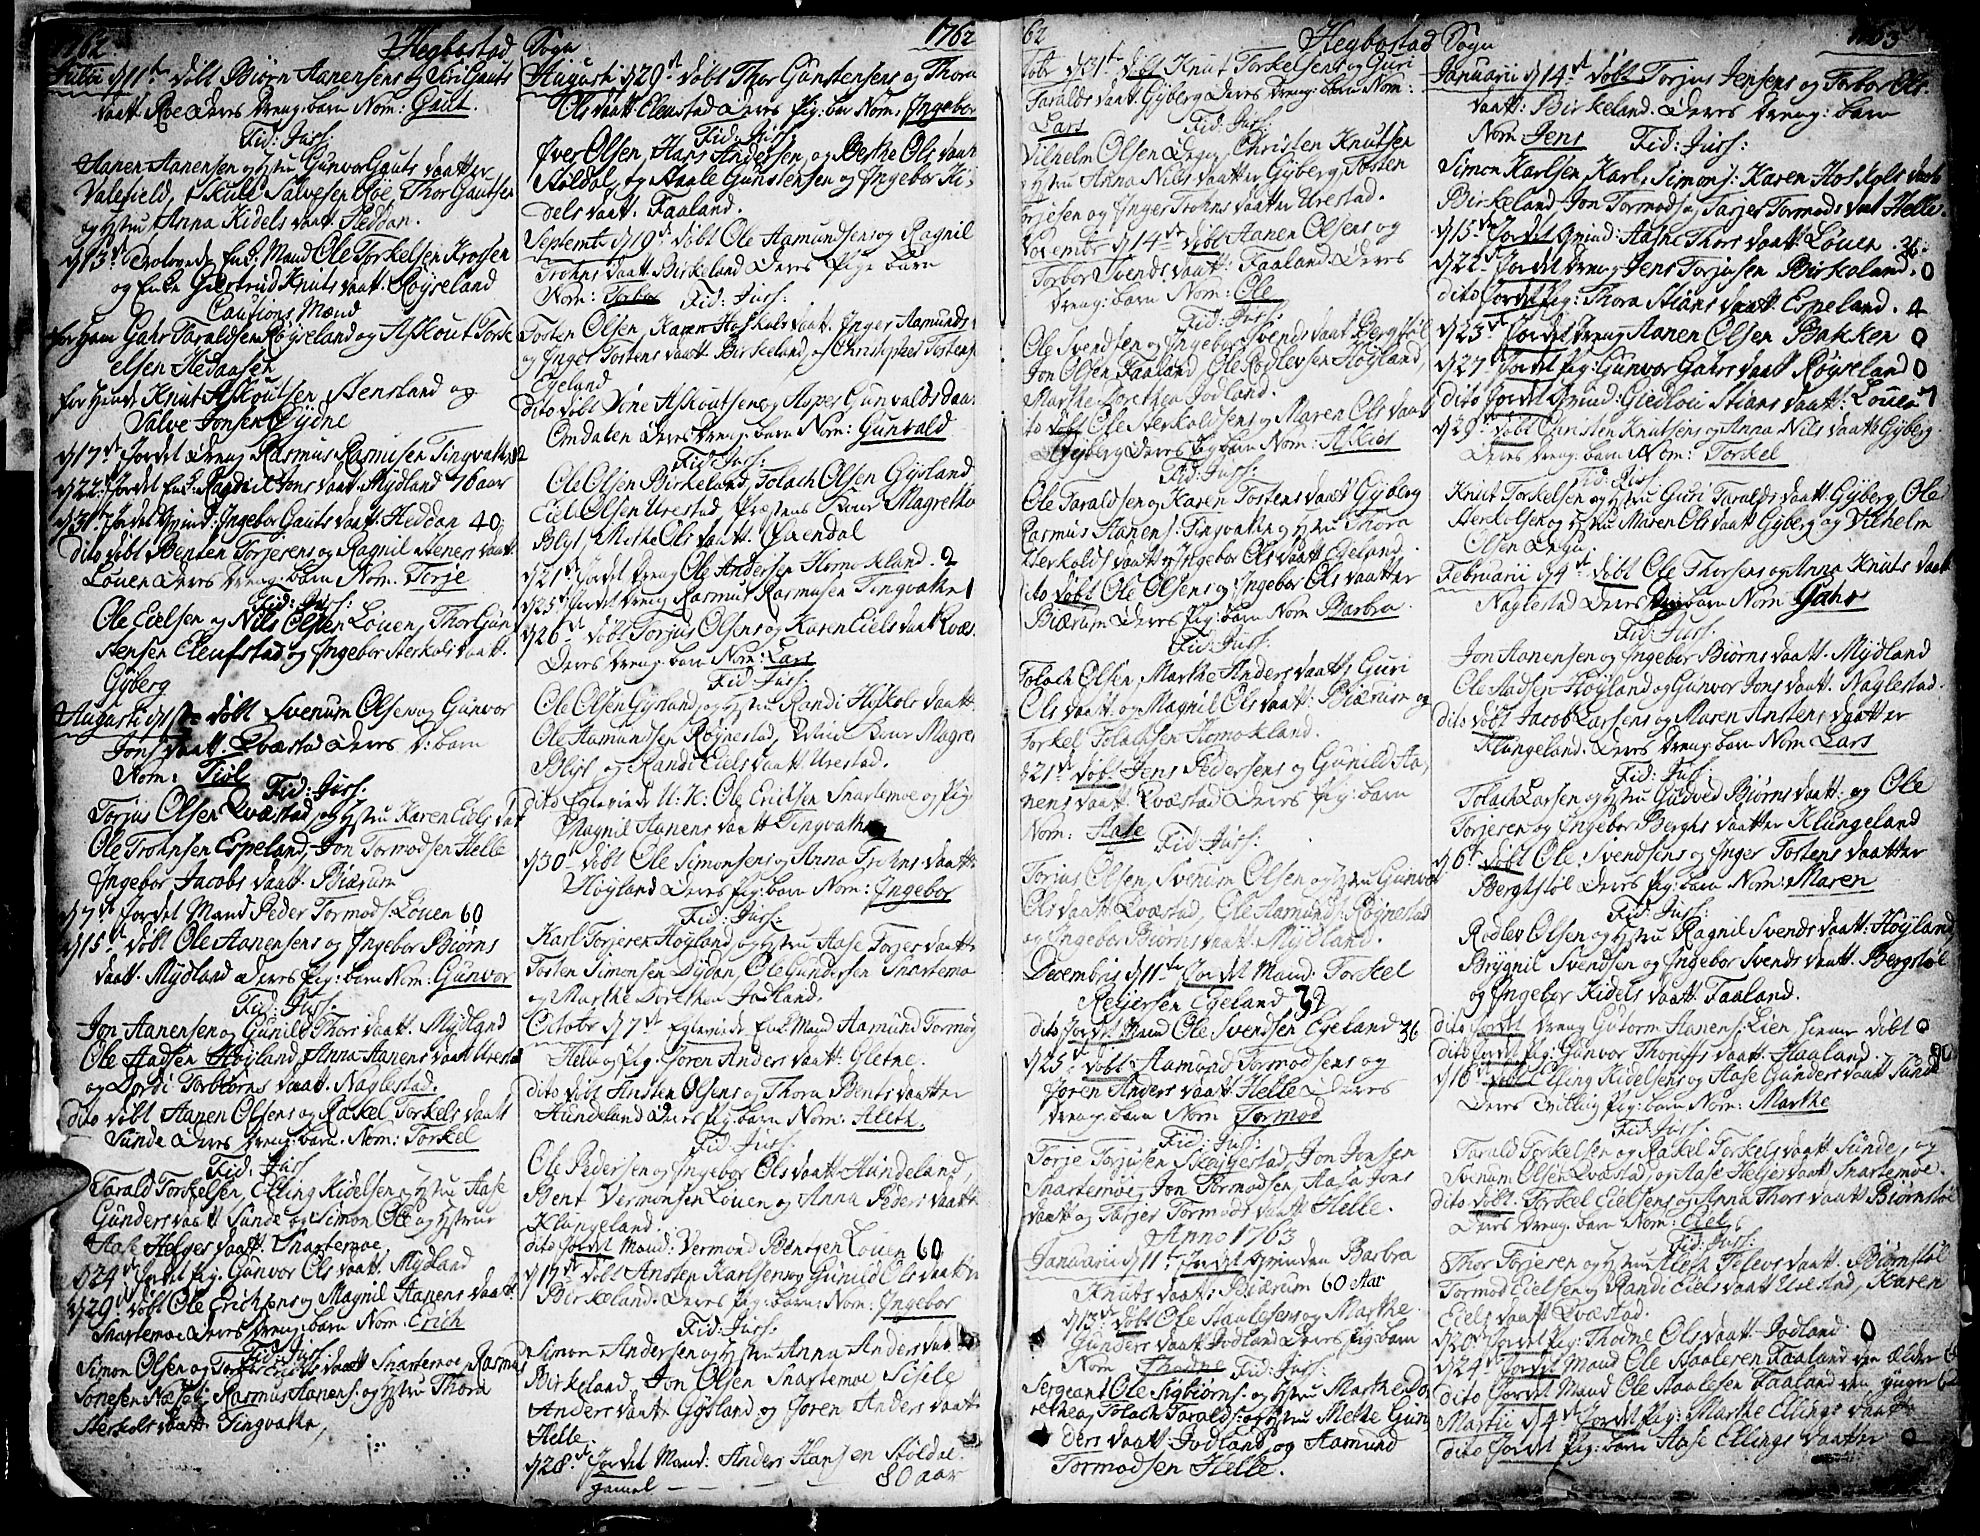 1762 Hegbostad Sogn 1762
Julii d 11te døbt Biørn Aanensens og Siri Gauts
daatt. Roe Deres Dreng: barn Nom: Gaut
Fid: Jurs.
Aanen Aanensen og Hstru Gunvor Gauts daatter
Valefield, Skule Salvesen Roe, Thor Gautsen
og Hstru Anna Kidels daatt. Heddan.
d 13de Trolovede Enk: Mand Ole Torkelsen Krossen
og Enke Giertrud Knuts daatt. Røyseland
Cautions Mænd
for Ham Gahr Taraldsen Røyseland og Askout Tork-
elsen Hedaasen
for Hende Knut Askoutsen Stensland og
Salve Jonsen Dydne
d 17de Jordet Dreng Rasmus Rasmusen Tingvatne
d 22de Jordet Enk: Ragnil Jons daatt. Mydland 76 aar
d 31te Jordet Qvind: Ingebor Gauts daatt. Heddan 40
Dito døbt Benten Torjesens og Ragnil Steners daatt.
Løuen Deres Dreng: barn Nom: Torje
Fid: Jurs:
Ole Eielsen og Nils Olsen Løuen, Thor Gun-
stensen Eleufstad og Ingebor Herkols daatt.
Gyberg
Augusti d 1te døbt Svenum Olsens og Gunvor
Jons daatt. Qvæstad Deres D: barn
Nom: Tiøl
Fid: Jurs.
Torjus Olsen Qvæstad og Hstru Karen Eiels daat
Ole Trohnsen Espeland, Jon Tormodsen Helle
Ingebor Jacobs daatt. Biærum
d 7de Jordet Mand Peder Tormods: Løuen 60
d 15de døbt Ole Aanensens og Ingebor Biørns
daatt. Mydland Deres Pig: barn Nom: Gunvor
Fid: Jurs.
Jon Aanensen og Gunild Thors daatt. Mydland
Ole Aadsen Høyland, Anna Aanens daatt Urestad
og Dorti Torbiørns daatt. Naglestad.
Dito døbt Aanen Olsens og Rakel Torkels daatt
Sunde Deres Dreng: barn. Nom: Torkel
Fid: Jurs
Tarald Torkelsen, Elling Kidelsen og Hstru Aase
Gunders daatt Sunde og Simon Ole og Hstrue
Aase Helges daatt. Snartemoe
d 24de Jordet Pig: Gunvor Ols daatt. Mydland
d 29de døbt Ole Erichsens og Magnil Aanens daatt.
Snartemoe Deres Dreng: barn Nom: Erich
Fid: Jurs:
Simon Olsen og Torbor Erichs daatt Snartemoe, Rasmus
Sonesen Næset, Rasmus Aanens: og Hstru Thora
Herkols daatt. Tingvatne,
Augusti d 29de døbt Thor Gunstensens og Thora
Ols daatt Eleustad Deres Pig: bar Nom: Ingebor
Fid: Jurs
Iver Olsen, Hans Andersen, og Berthe Ols daatt
Støldal, og Aaale Gunstensen og Ingebor Ki-
dels daatt. Faaland.
Septembr d 19de døbt Ole Aamundsens og Ragnil
Trohns daatt. Birkeland Deres Pige barn
Nom: Torbor Fid: Jurs:
Tosten Olsen, Karen Hoskols daatt. Inger Aamunds
og Inger Tostens daatt Birkeland, og Christopher Tostens
Egeland
dito døbt Vone Askoutsens og Asper Gunvalds daatt
Omdalen Deres Dreng: barn Nom: Gunvald
Fid: Jurs:
Ole Olsen Birkeland, Tolach Olsen Gysland
Eiel Olsen Urestad Præstens Kone Magrethe
Blyt, Methe Ols daatt. Qvendal
d 21de Jordet Dreng Ole Andersen Homokland. 2
d 25de Jordet Dreng Rasmus Rasmusen Tingvatne 1
d 26de døbt Torjus Olsens og Karen Eiels daatt Qvæs.
Deres Dreng: barn Nom: Lars
Fid: Jurs:
Ole Olsen Gysland, og Hstru Randi Hoskols daatt
Ole Aamundsen Røynestad, Kone Magre
Blyt og Randi Eiels daatt Urestad.
dito Egteviede U: K: Ole Erichsen Snartemoe og Pig
Magnil Aanens daatt Tingvatne
d 30 døbt Ole Simonsens og Anna Trohns daatt.
Høyland Deres Pig: barn Nom: Ingebor
Fid: Jurs:
Karl Torjesen Høyland, og Hstru Aase Torjes daatt
Tosten Simonsen Dydan, Ole Gundersen Snartemo
og Marthe Dorethea Jodland.
Octobr d 7de Egteviede Enk: Mand Aamund Tormod
Helle og Pig: Joren Anders daatt: Gletne.
dito døbt Ansten Olsens og Thora Bents daatter
Hundeland Deres Pig: barn Nom: Aleth.
Fid: Jurs:
Ole Pedersen og Ingebor Ols daatt: Hundeland,
Bent Vermonsen Løuen og Anna Peders daatt
Klungeland.
dito Jordet Mand: Vermond Bentsen Løuen 60
d 17de døbt Ansten Karlsens og Gunild Ols daatt
Birkeland. Deres Pig: barn: Nom: Ingebor
Fid: Jurs:
Simon Andersen og Hstru Anna Anders daat
Birkeland Jon Olsen Snartemoe Sisile
Anders daatt Gysland og Joren Anders daatt
Helle.
d 28de Jordet Mand: Anders Hansen Støldal.
gamel — — — 80 aar
62 Hegbostad Sogn 1763
Tobr d 31te døbt Knut Torkelsens og Guri
Taralds daatt. Gyberg Deres Dreng: barn Nom:
Lars Fid: Jurs:
Vilhelm Olsen Christen Knutsen
og Hstru Anna Nils daatter Gyberg, Tosten
Torjesen og Inger Trohns daatter Urestad.
Novembr d 14de døbt Aanen Olsens og
Torbor Svends daatt: Faaland Deres
Dreng: barn Nom: Ole
Fid: Jurs:
Ole Svendsen og Ingebor Svends daatt Bergstøl
Jon Olsen Faaland Ole Rodlevsen Høyland,
Marthe Dorethea Jodland.
to døbt Ole Herkoldsens og Maren Ols daatt
Gyberg Deres Pig barn Nom:
Fid: Jurs:
Ole Taraldsen og Karen Tostens daatt Gyberg
Rasmus Aanens: Tingvatne og Hstru Thora
Herkolds daatt og Ingebor Ols daatt Egeland.
dito døbt Ole Olsens og Ingebor Ols daatter
Biærum Deres Pig: barn Nom: Barbra.
Fid: Jurs:
Tolach Olsen, Marthe Anders daatt, Guri
Ols daatt. og Magnil Ols daatt: Biærum og
Torkel Tolachsen Homokland.
d 21de døbt Jens Pedersens og Gunild Aa-
nens daatt. Qvæstad Deres Pig: barn
Nom: Aase Fid: Jurs:
Torjus Olsen, Svenum Olsen og Hstru Gunvor
Ols daatt Qvæstad, Ole Aamunds: Røynestad
og Ingebor Biørns daatt: Mydland.
Decembris d 11te Jordet Mand. Torkel
Reyersen Egeland 39
dito Jordet Mand Ole Svendsen Egeland 36
d 25de døbt Aamund Tormodsens og
Joren Anders daatt Helle Deres
Dreng: barn Nom Tormod
Fid: Jurs:
Torje Torjusen Skeggestad, Jon Jonsen
Snartemoe, Jon Tormodsen, Aasa Jons
daatt og Tarjer Tormods daatt Helle.
Anno 1763
Januarii d 11te Jordet Qvinden Barbra
Knuts daatt: Biærum 60 Aar
d 13de døbt Ole Staalesens og Marthe.
Gunders daatt Jodland Deres Pig: barn
Nom Thodne Fid: Jurs:
Sergeant Ole Sigbiørns: og Hstru Marthe Do-
rethea, Tolach Taralds: og Hstru Mette Gun-
ders daatt: Jodland og Aamund
Tormodsen Helle.
Januarii d 14de døbt Torjus Jensens og Torbor Ols
daatt: Birkeland. Deres Dreng: barn
Nom: Jens Fid: Jurs:
Simon Karlsen, Karl Simons: Karen Hoskols daatt
Birkeland Jon Tormodsen, Tarjer Tormods daat Helle.
d 15de Jordet Qvind: Aasne Thors daatt: Løuen. 36.
d 22de Jordet Dreng Jens Torjusen Birkeland. 0
dito Jordet Pig: Thora Stians daatt. Espeland. 4
d 23de Jordet Dreng Aanen Olsen Bakken 0
d 27de Jordet Pig: Gunvor Gahrs daatt Røyseland 0
dito Jordet Qvind: Giedlou Stians daatt: Løuen
d 29de døbt Christen Knutsens og Anna Nils daatt Gyberg.
Deres Dreng: barn Nom: Torkel
Fid: Jurs
Knut Torkelsen og Hstru Guri Taralds daatt. Gyberg Ole
Herkolsen og Hstru Maren Ols daatt Gyberg og Vilhelm
Olsen
Februarii d 4de døbt Ole Thorsens og Anna Knuts daatt
Naglestad Deres Dreng barn Nom: Gahr
Fid: Jurs.
Jon Aanensen og Ingebor Biørns daatt. Mydland
Ole Aadsen Høyland og Gunvor Jons daatt. Naglestad.
dito døbt Jacob Larsens og Maren Anstens daatter
Klungeland. Deres Dreng: barn Nom Lars
Fid: Jurs:
Tolach Larsen og Hstru Gudved Biørns daatt: og Ole
Torjesen og Ingebor Berghs daatter Klungeland
d 6te døbt Ole Svendsens og Inger Tostens daatter
Bergstøl Deres Pig: barn Nom: Maren
Fid: Jurs:
Rodlev Olsen og Hstru Ragnil Svends daatt: Høyland,
Brygnil Svendsen og Ingebor Svends daatt. Bergstøl
og Ingebor Kidels daatt. Faaland.
dito Jordet Dreng Gutorm Aanens: Lien, hieme døbt 0
dito Jordet Pig: Gunvor Thoriffs daatt. Haaland. — — 80
d 16de døbt Elling Kidelsens og Aase Gunders daatt Sunde
Deres Tvilling Pig: barn Nom: Marthe
Fid: Jurs:
Tarald Torkelsen og Rakel Torkels daatt. Sunde, og
Svenum Olsen Qvæstad, og Aase Heljes daatt Snartemoe.
dito døbt: Torkel Eielsens og Anna Thors daatt Biørnstøl
Deres Dreng: barn Nom: Eiel
Fid: Jurs:
Thor Torjesen og Hstru Aleth Televs daatt. Biørnstøl
Tormod Eielsen og Randi Eiels daatt Urestad, Karen
Eiels daatt Qvæstad.
d 20de Jordet Pig: Thodne Ols daatt Jodland 0
d 24de Jordet Mand Ole Staalesen Faaland den Ælder
dito Jordet Mand Ole Staalesen Faaland den yngre
Martii d 4de Jordet Pig: Marthe Ellings daatt
dito Jordet Pig: barn Aase Ellings daatter 0